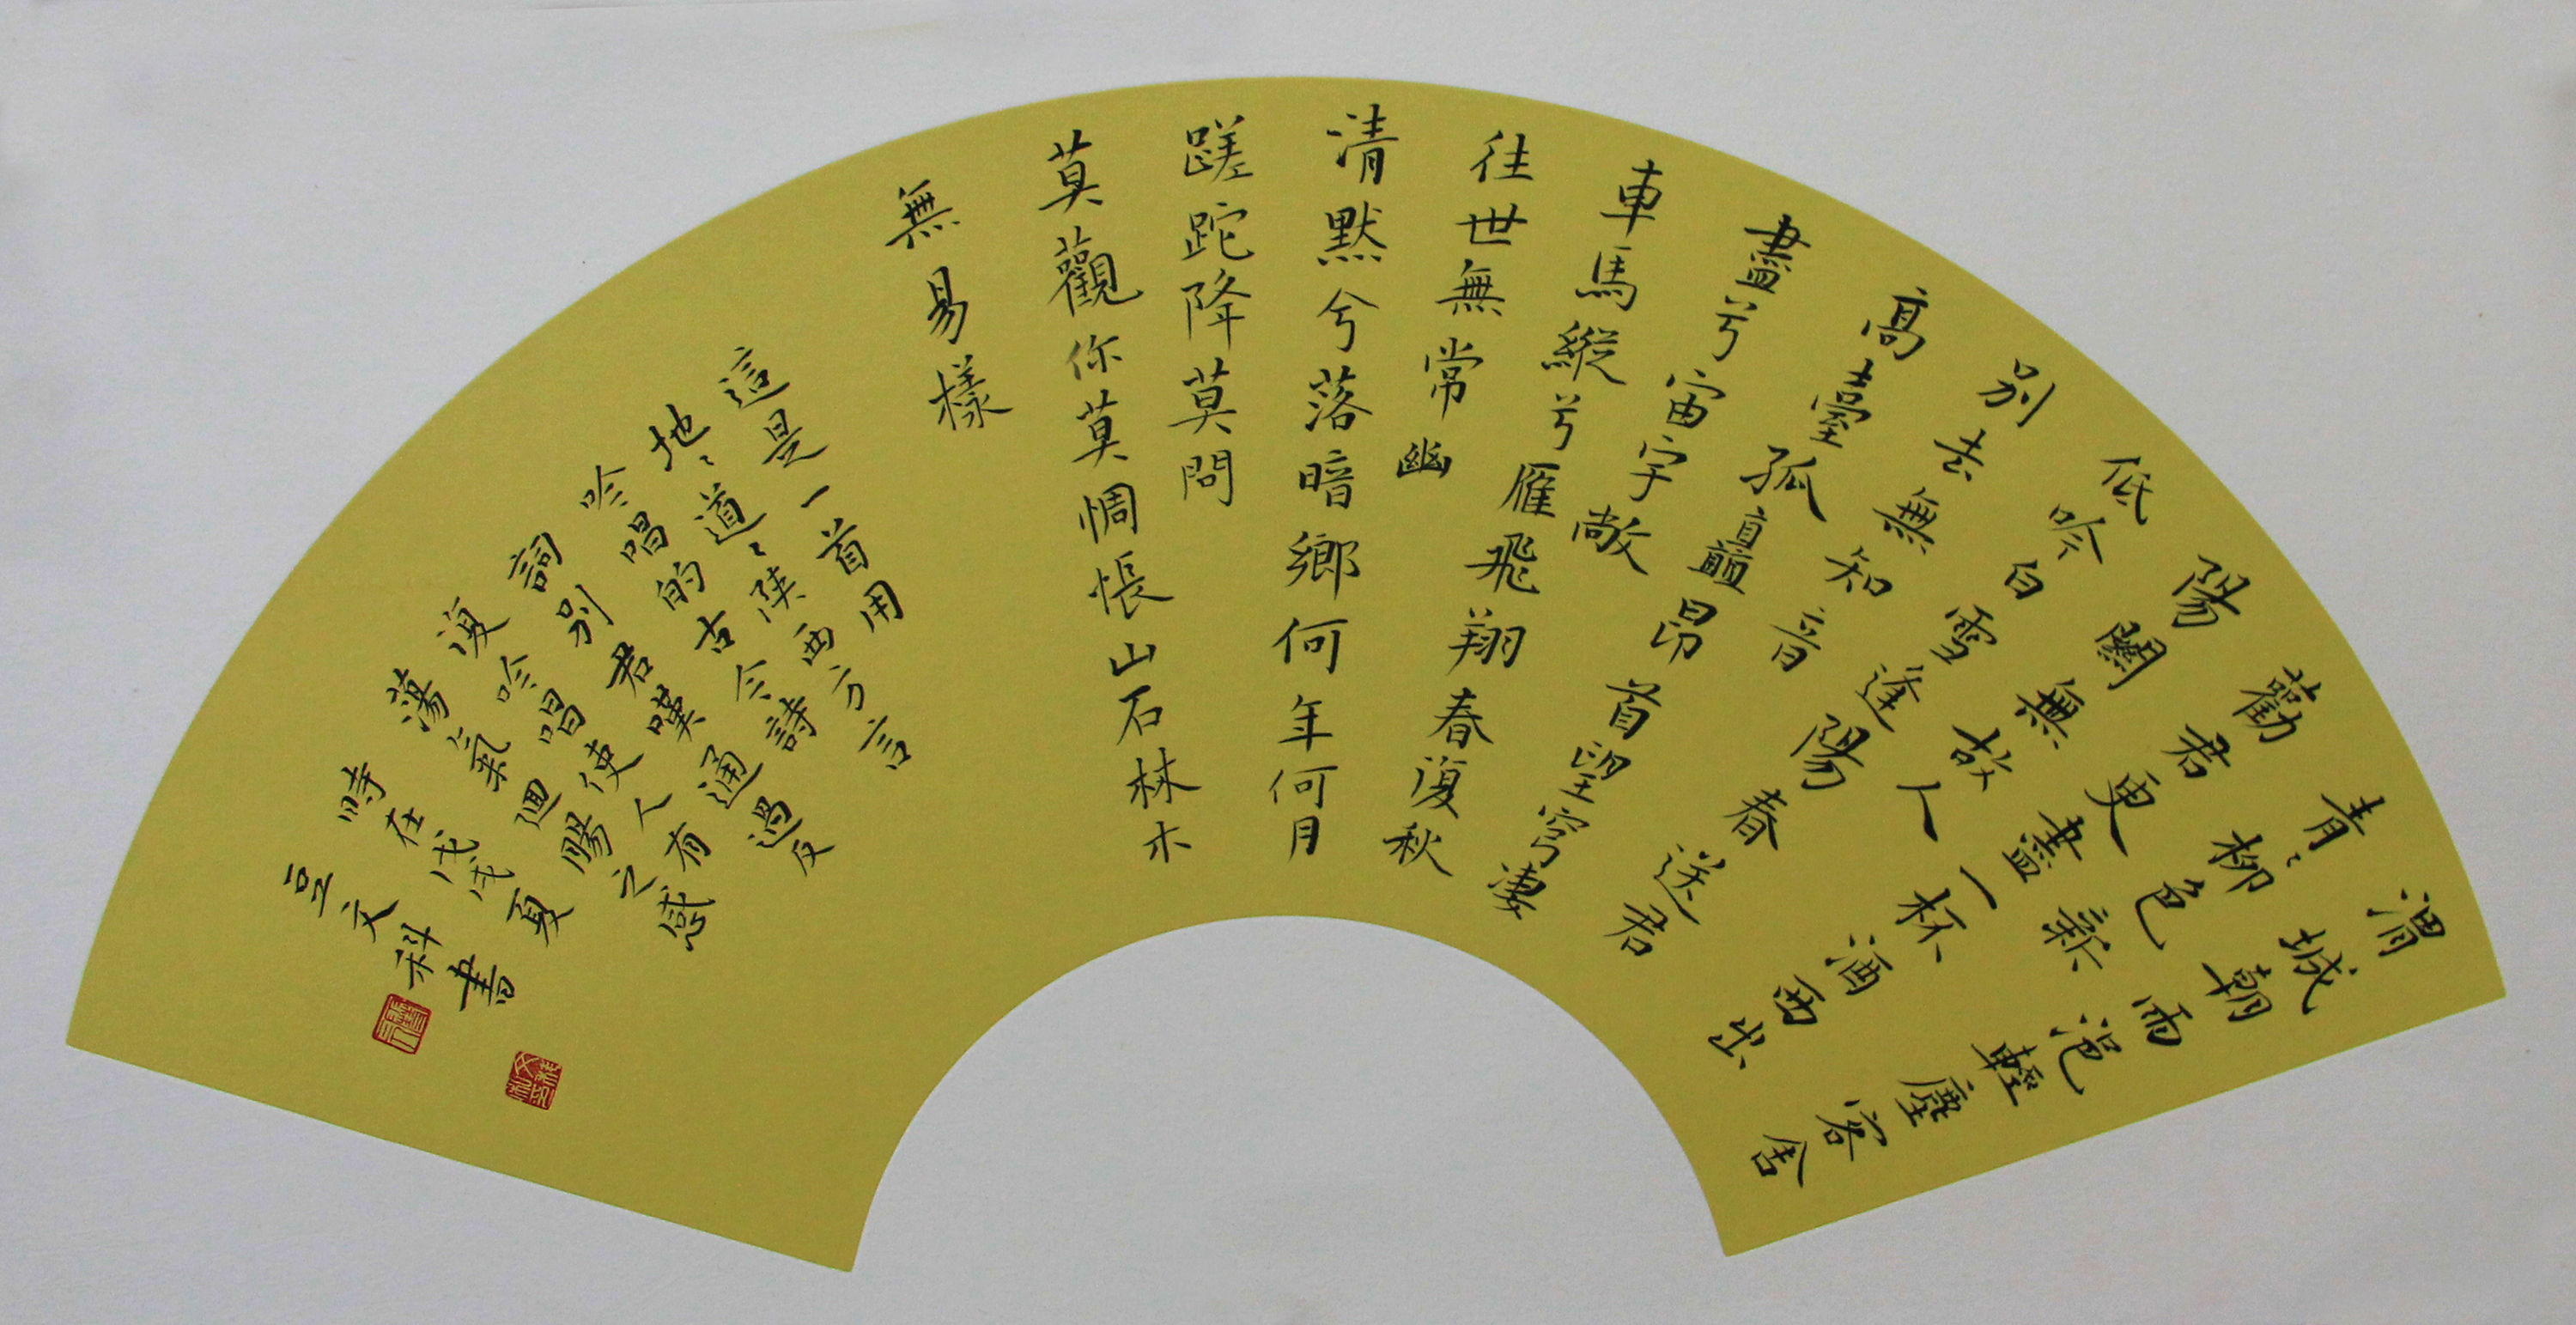 渭城朝雨浥輕塵客舍
青〻柳色新
勸君更盡一杯酒西出
陽關無故人
低吟白雪逢陽春送君
別去無知音
高臺孤矗昂首望穹凄
盡兮宙宇敞
車馬縱兮雁飛翔春復秋
往世無常幽
清默兮落暗鄉何年何月
蹉跎降莫問
莫觀你莫惆悵山石林木
無易樣
這是一首用
地〻道〻陝西方言
吟唱的古今詩
詞別君嘆通過反
復吟唱使人有
蕩氣迴腸之感
時在戊戌夏
豆文科書